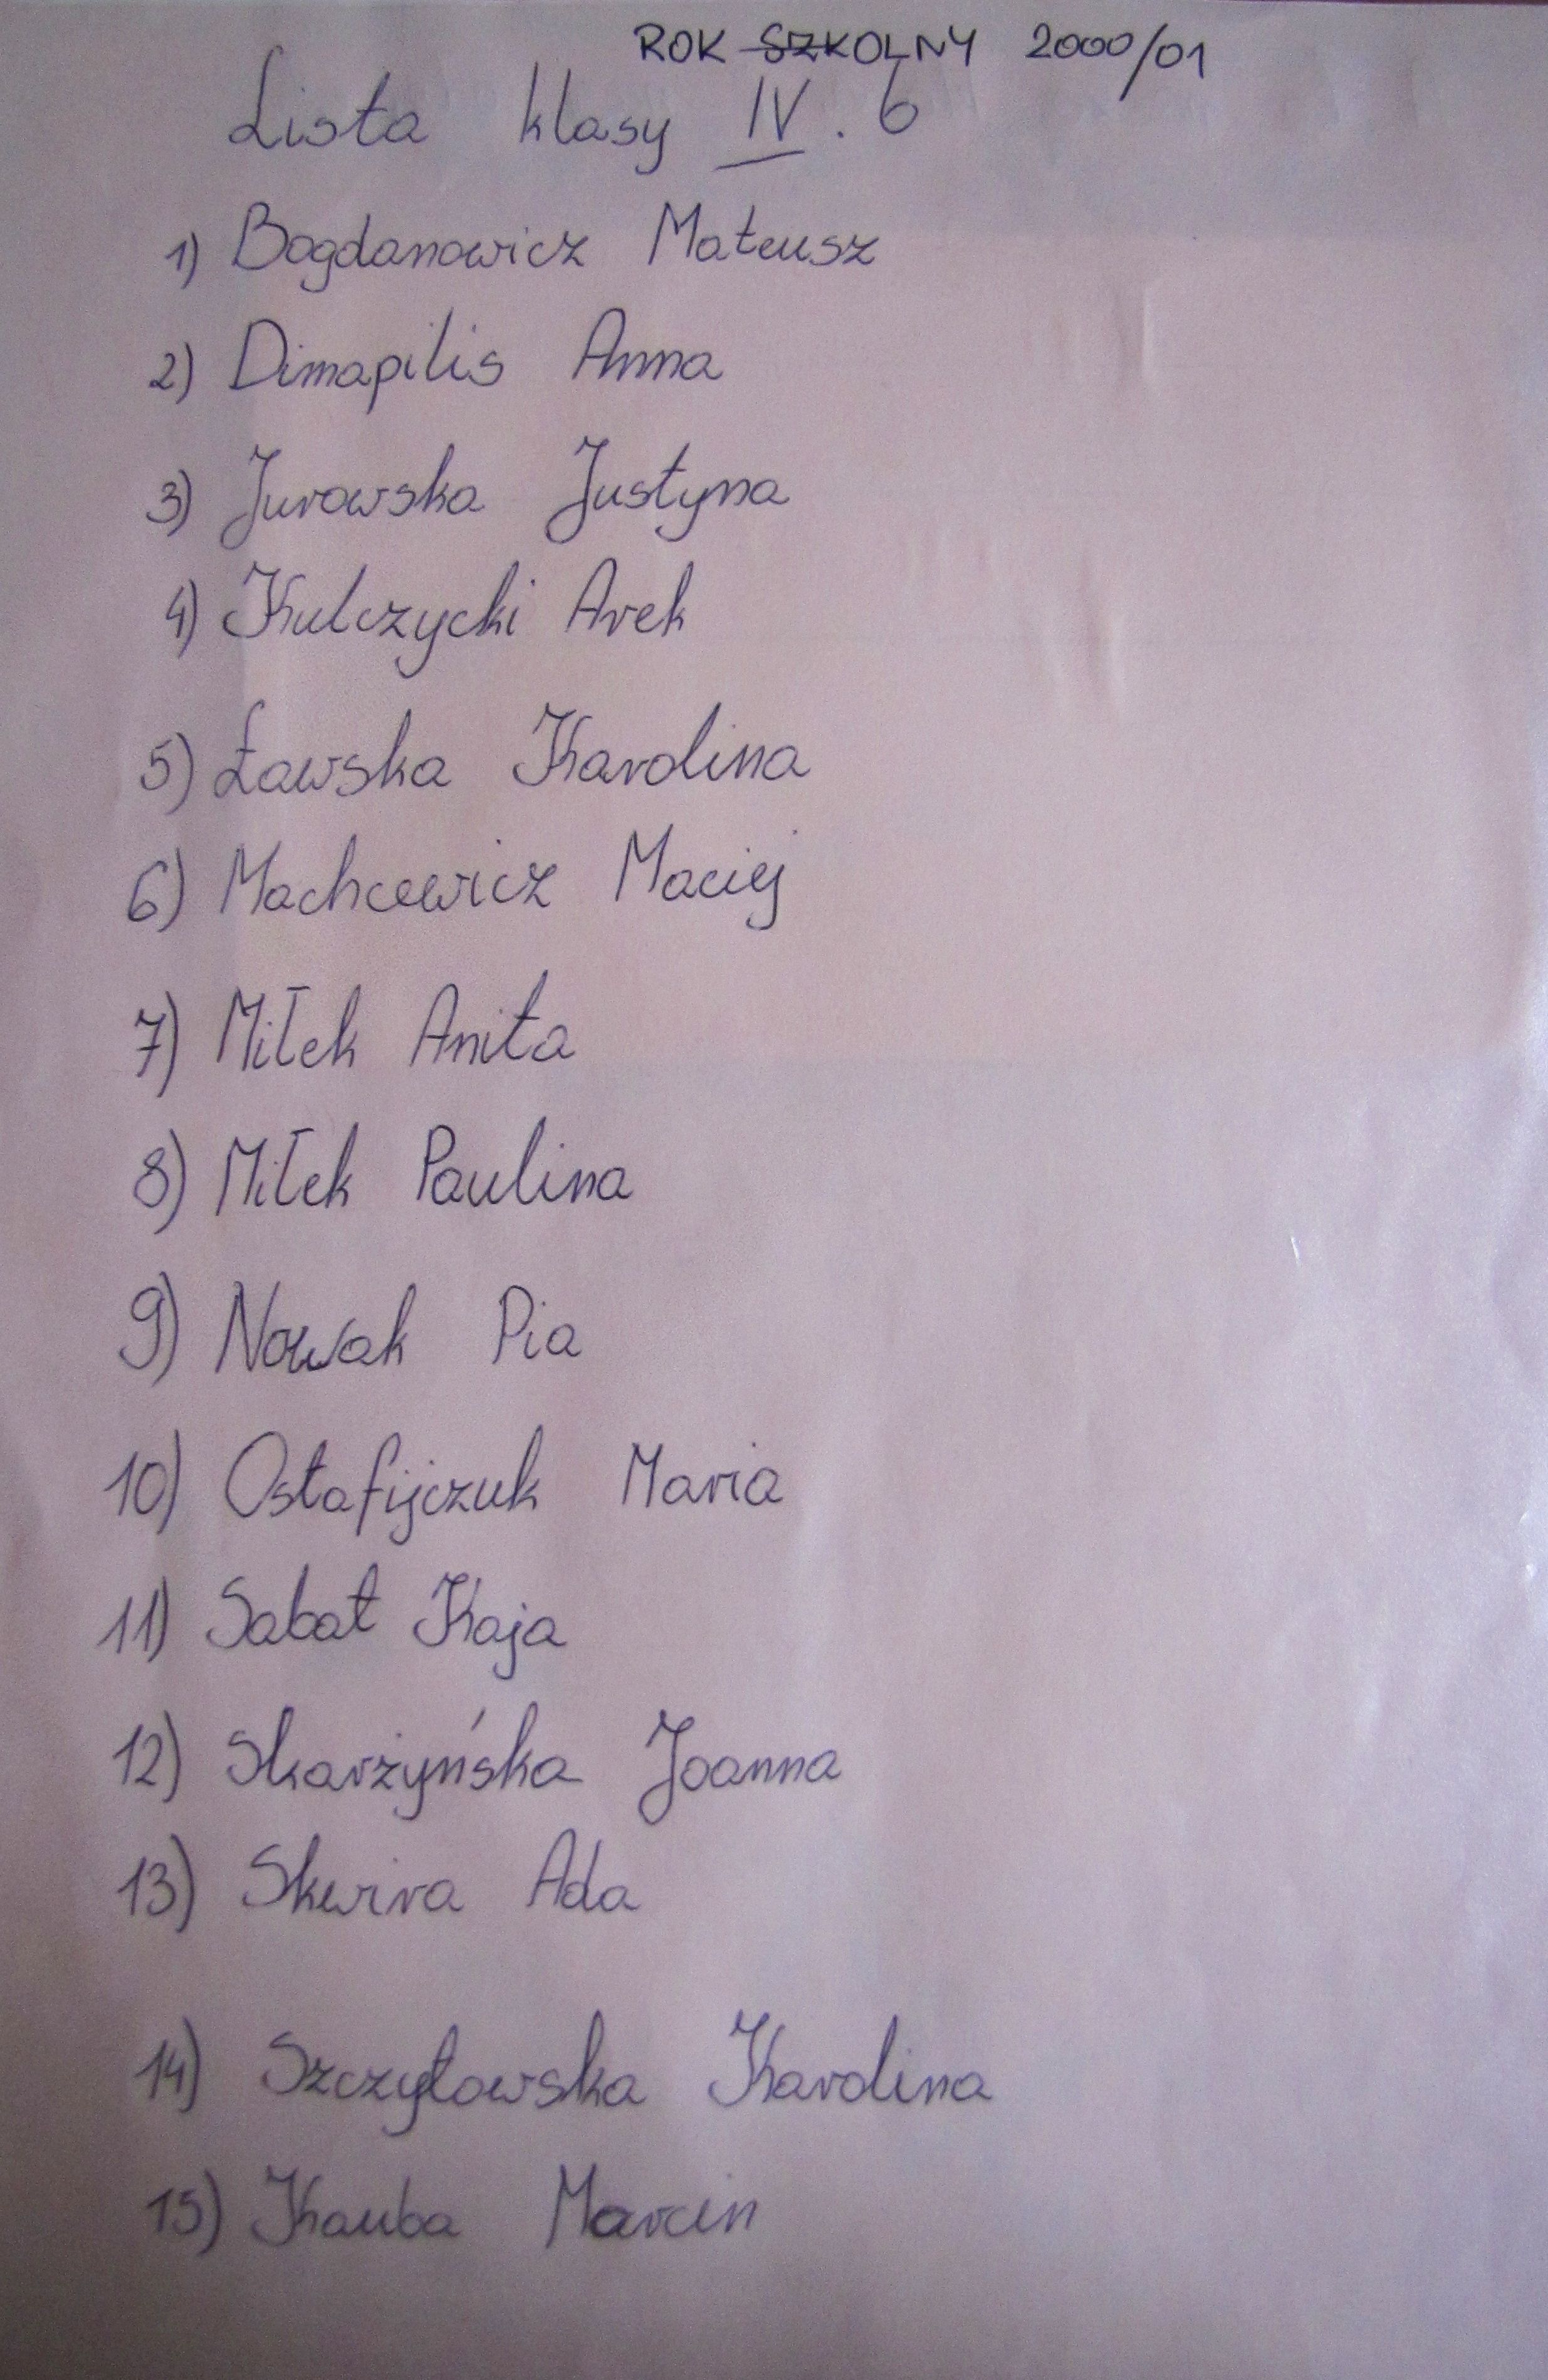 ROK SZKOLNY 2000/01
Lista klasy IV. 6
1) Bogdanowicz Mateusz
2) Dimapilis Anna
3) Jurowska Justyna
4) Kulczycki Arek
5) Ławska Karolina
6) Machcewicz Maciej
7) Miłek Anita
8) Miłek Paulina
9) Nowak Pia
10) Ostafijczuk Maria
11) Sabat Kaja
12) Skarżyńska Joanna
13) Skwira Ada
14) Szczyłowska Karolina
15) Kauba Marcin